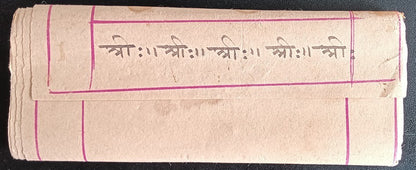 श्रीः॥ श्रीः॥ श्रीः॥ श्रीः॥ श्रीः